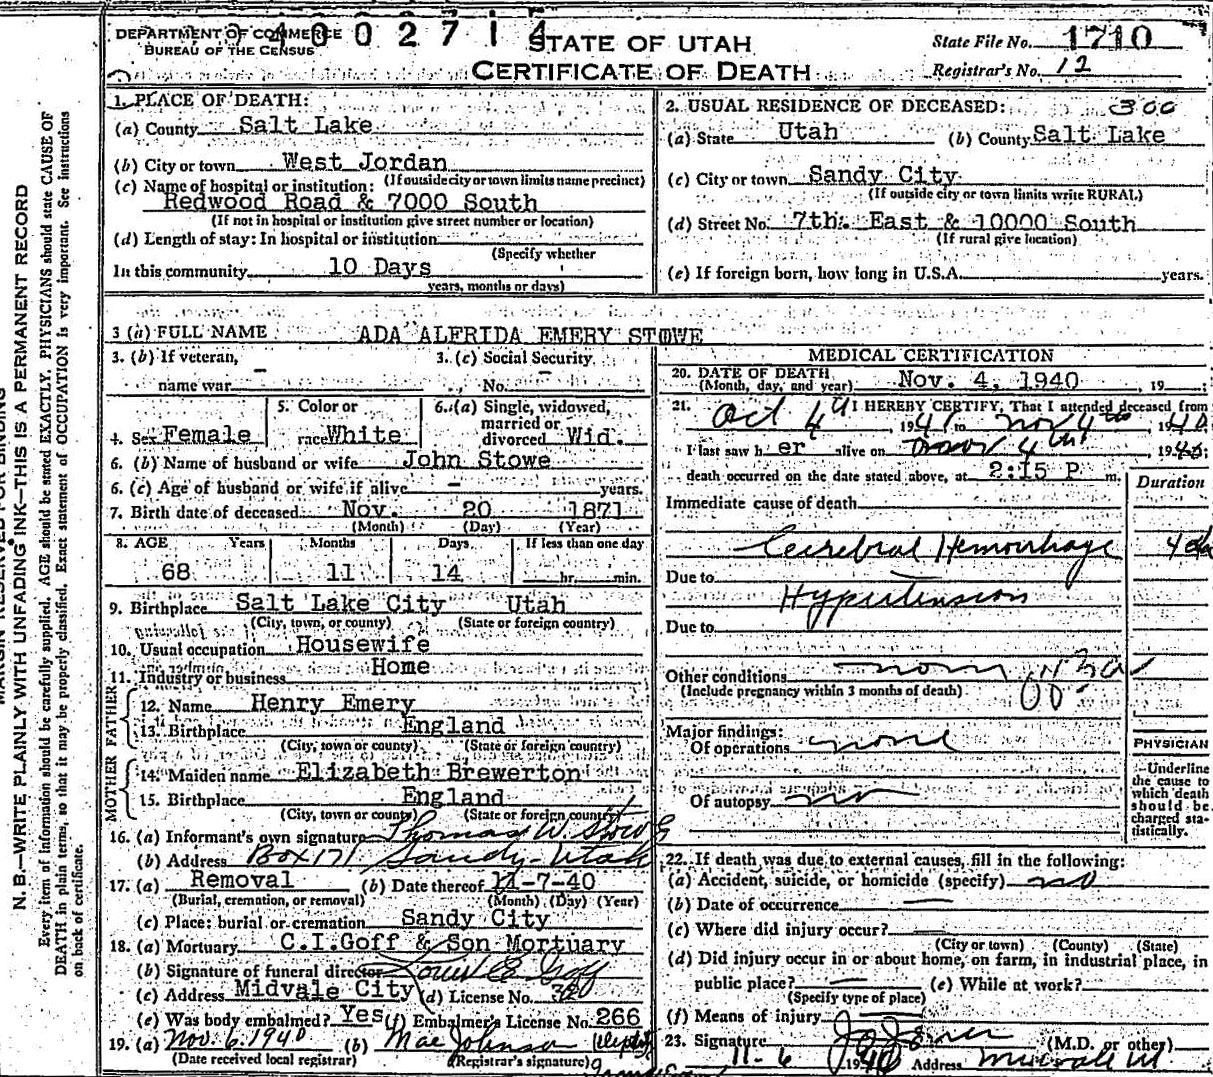 DEPARTMENT OF COMMERCE
BUREAU OF THE CENSUS
4002714
STATE OF UTAH
CERTIFICATE OF DEATH
State File No. 1710
Registrar's No. 12
MARGIN RESERVED FOR BINDING
N.B.—WRITE PLAINLY WITH UNFADING INK—THIS IS A PERMANENT RECORD
Every item of information should be carefully supplied. AGE should be stated EXACTLY. PHYSICIANS should state CAUSE OF
DEATH in plain terms, so that it may be properly classified. Exact statement of OCCUPATION is very important. See instructions
on back of certificate.
1. PLACE OF DEATH:
(a) County Salt Lake
(b) City or town West Jordan
(If outside city or town limits name precinct)
(c) Name of hospital or institution:
Redwood Road & 7000 South
(If not in hospital or institution give street number or location)
(d) Length of stay: In hospital or institution
(Specify whether
In this community 10 Days
years, months or days)
2. USUAL RESIDENCE OF DECEASED: 300
(a) State Utah (b) County Salt Lake
(c) City or town Sandy City
(If outside city or town limits write RURAL)
(d) Street No. 7th. East & 10000 South
(If rural give location)
(e) If foreign born, how long in U.S.A. years.
3 (a) FULL NAME ADA ALFRIDA EMERY STOWE
3. (b) If veteran, name war -
3. (c) Social Security No. -
4. Sex Female
5. Color or race White
6. (a) Single, widowed, married or divorced Wid.
6. (b) Name of husband or wife John Stowe
6. (c) Age of husband or wife if alive - years.
7. Birth date of deceased Nov. 20 1871
(Month) (Day) (Year)
8. AGE Years Months Days If less than one day
68 11 14 hr. min.
9. Birthplace Salt Lake City Utah
(City, town, or county) (State or foreign country)
10. Usual occupation Housewife
11. Industry or business Home
FATHER
12. Name Henry Emery
13. Birthplace England
(City, town or county) (State or foreign country)
MOTHER
14. Maiden name Elizabeth Brewerton
15. Birthplace England
(City, town or county) (State or foreign country)
16. (a) Informant's own signature Thomas W. Stowe
(b) Address Box 171 Sandy - Utah
17. (a) Removal (b) Date thereof 11-7-40
(Burial, cremation, or removal) (Month) (Day) (Year)
(c) Place: burial or cremation Sandy City
18. (a) Mortuary C.I.Goff & Son Mortuary
(b) Signature of funeral director Goff
(c) Address Midvale City (d) License No.
(e) Was body embalmed? Yes (f) Embalmer's License No. 266
19. (a) Nov. 6. 1940 (b) Mae Johnson Deputy
(Date received local registrar) (Registrar's signature)
MEDICAL CERTIFICATION
20. DATE OF DEATH
(Month, day, and year) Nov. 4, 1940, 19
21. I HEREBY CERTIFY, That I attended deceased from
Oct 4th, 19 to Nov 4th, 1940
I last saw her alive on Nov 4th, 1940;
death occurred on the date stated above, at 2:15 P m.
Duration
Immediate cause of death
Cerebral Hemorrhage
Due to
Hypertension
Due to
Other conditions none
(Include pregnancy within 3 months of death)
Major findings:
Of operations none
Of autopsy no
PHYSICIAN
Underline
the cause to
which death
should be
charged sta-
tistically.
22. If death was due to external causes, fill in the following:
(a) Accident, suicide, or homicide (specify) no
(b) Date of occurrence
(c) Where did injury occur?
(City or town) (County) (State)
(d) Did injury occur in or about home, on farm, in industrial place, in
public place? (e) While at work?
(Specify type of place)
(f) Means of injury
23. Signature (M.D. or other)
11-6 1940 Address Midvale Ut